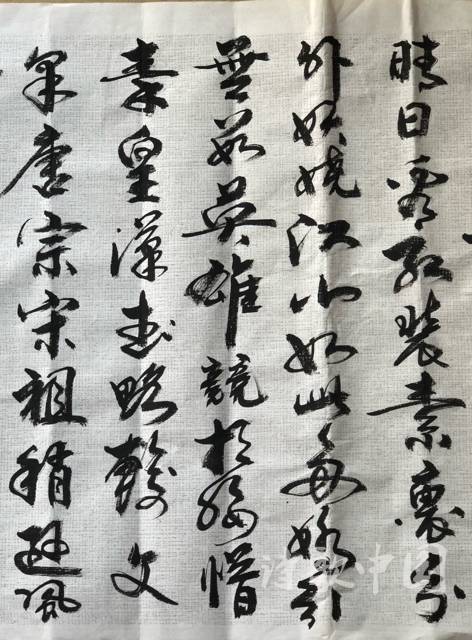 晴日看红装素裹分
外妖娆江山如此多娇引
無数英雄競折腰惜
秦皇漢武略輸文
采唐宗宋祖稍逊風
诗歌中国